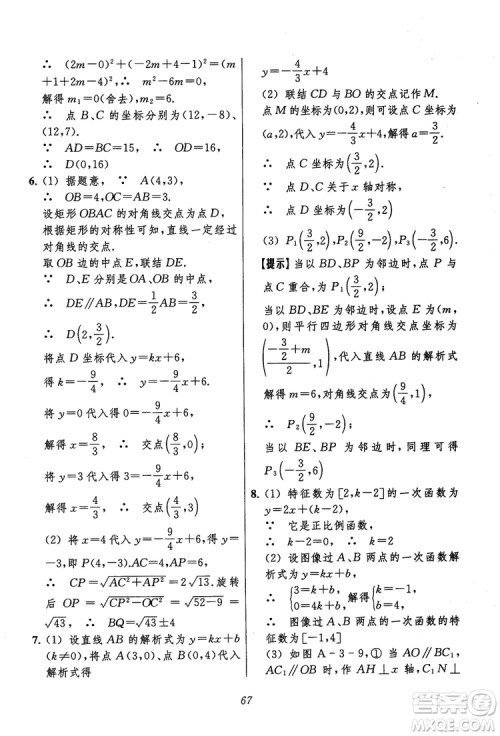 ∴ (2m-0)²+(-2m+4-1)²=(m
+1+2m-4)² ∴ m²-6m=0.
解得 m₁=0(舍去), m₂=7.
∴ 点 B、C 的坐标分别为(12,-8)、
(12,7).
∵ AD=BC=15 ∴ OD=16.
∴ D(0,16)
6. (1) 据题意, ∵ A(4,3),
∴ OB=4,OC=AB=3.
设矩形 OBAC 的对角线交点为点 D,
根据矩形的对称性可知,直线一定经过
对角线的交点.
取 OB 边的中点 E,联结 DE.
∵ D、E 分别是 OA、OB 的中点,
∴ DE∥AB,DE=1/2AB=3/2
∴ D(2,3/2)
将点 D 坐标代入 y=kx+6,
得 k=-9/4 ∴ y=-9/4x+6,
将 y=0 代入得 0=-9/4x+6,
解得 x=8/3 ∴ 交点(8/3,0)
将 y=3 代入得 3=-9/4x+6,
解得 x=4/3 ∴ 交点(4/3,3)
(2) 将 x=4 代入 y=-9/4x+6,得 y=
-3,即 P(4,-3).AC=4,AP=6,
∴ CP=√AC²+AP²=2√13. 旋转
后 OP=√CP²-OC²=√52-9=
√43 ∴ BQ=√43
7. (1) 设直线 AB 的解析式为 y=kx+b
(k≠0),将 A(3,0)、B(0,4)代入
解析式得
y=-4/3x+4
(2) 联结 CD 与 BO 的交点记作 M.
点 M 的坐标为(0,2),设点 D 的坐标为
(a,2),代入 y=-4/3x+4,解得 a=3/2
∴ 点 D 的坐标为(3/2,2)
∵ 点 C、D 关于 x 轴对称,
∴ 点 C 的坐标为(-3/2,2)
(3) P₁(3/2,2),P₂(9/4,1),P₃(-3/2,6).
【提示】当以 BD、BP 为邻边时,点 P 与
点 C 重合,为(3/2,2);
当以 BD、BE 为邻边时,设 E(m,0),
则平行四边形对角线交点的坐标为
(-3/2+m/2,1),代入直线 AB 的解析式
得 m=6,对角线交点为(9/4,1),
∴ P₂(9/4,1);
当以 BE、BP 为邻边时,同理可得
P₃(-3/2,6)
8. (1) 特征数为[2,k-2]的一次函数为
y=2x+(k-2).
∵ 它是正比例函数,
∴ k-2=0,∴ k=2
(2) 设图像过 A、B 两点的一次函数解
析式为 y=kx+b,
∴ {3=k+b, 4=b, 解得{k=-1, b=4.
∴ 图像过 A、B 两点的一次函数的
特征数为[-1,4]
(3) 如图 A-3-9,① 当 AO∥BC 时,
AC₁∥OB,作 AH⊥x 轴,BC₁⊥
67
答案圈